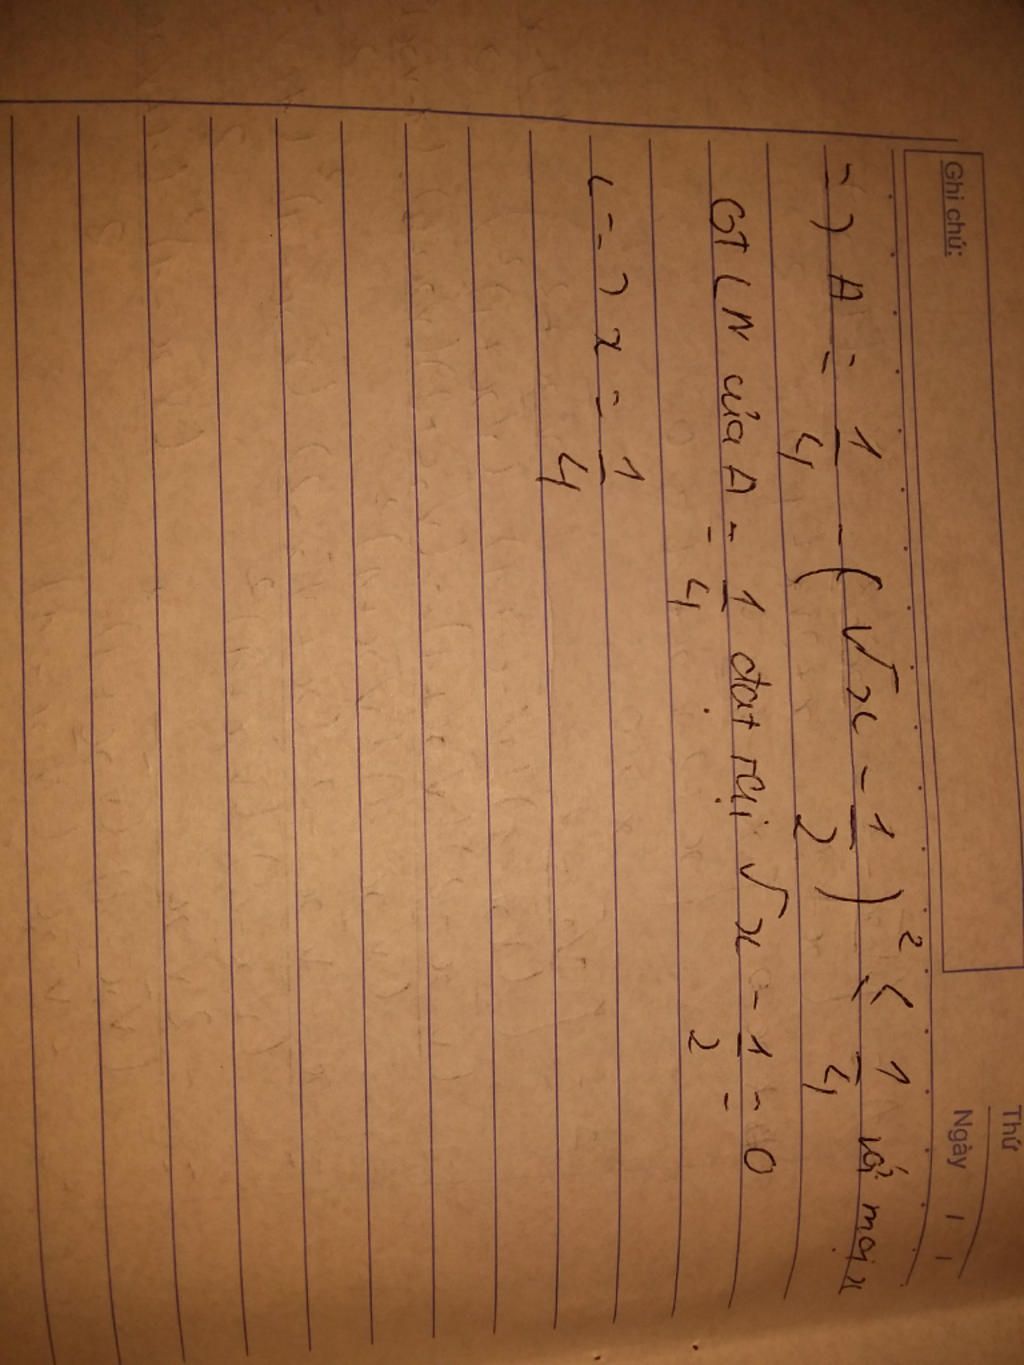 Ghi chú:
Thứ
Ngày / /
=) A = 1/4 - (√x - 1/2)² ≤ 1/4 với mọi x
GTLN của A = 1/4 đạt tại √x - 1/2 = 0
(=) x = 1/4